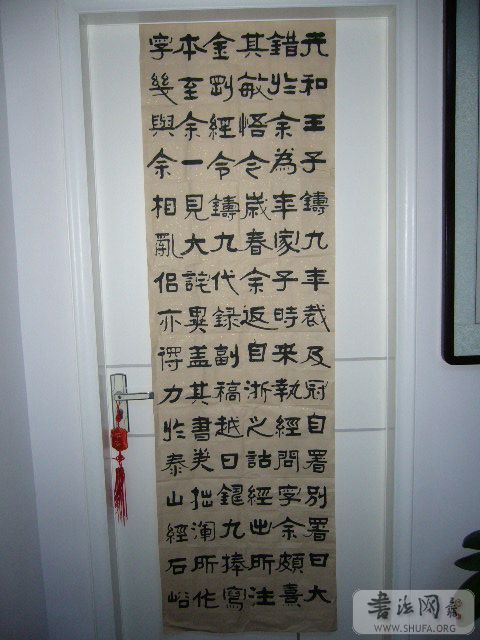 元和王子鑄九年裁及冠自署別署曰大
錯於余為年家子時來執經問字余頗憙
其敏悟今歲春余返自浙之詁經出所注
金剛經令鑄九代錄副稿越日鑄九捧寫
本至余一見大詫異蓋其書美拙渾所作
字幾與余相亂侶亦得力於泰山經石峪
書法网
WWW.SHUFA.ORG